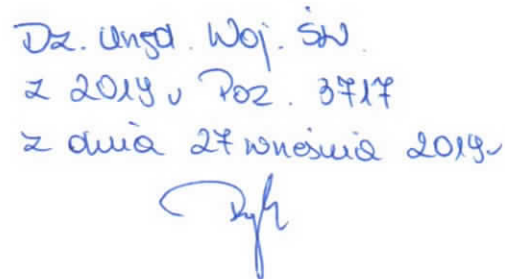 Dz. Urzęd. Woj. Św.
z 2019 r Poz. 3717
z dnia 27 września 2019r